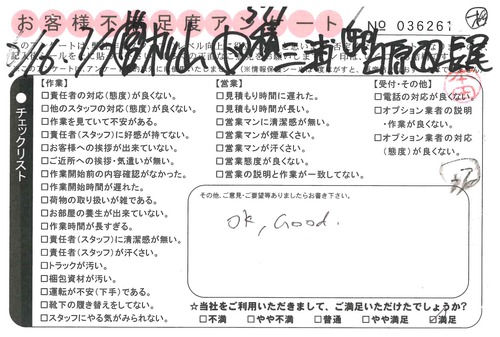 お客様不満足度アンケート
No 036261
【作業】
□責任者の対応(態度)が良くない。
□他のスタッフの対応(態度)が良くない。
□作業を見ていて不安がある。
□責任者(スタッフ)に好感が持てない。
□お客様への挨拶が出来ていない。
□ご近所への挨拶・気遣いが無い。
□作業開始前の内容確認がなかった。
□作業開始時間が遅れた。
□荷物の取り扱いが雑である。
□お部屋の養生が出来ていない。
□作業時間が長すぎる。
□責任者(スタッフ)に清潔感が無い。
□責任者(スタッフ)が汗くさい。
□トラックが汚い。
□梱包資材が汚い。
□運転が不安(下手)である。
□靴下の履き替えをしてない。
□スタッフにやる気がみられない。
【営業】
□見積もり時間に遅れた。
□見積もり時間が長い。
□営業マンに清潔感が無い。
□営業マンが煙草くさい。
□営業マンが汗くさい。
□営業態度が良くない。
□営業の説明と作業が一致してない。
【受付・その他】
□電話の対応が良くない。
□オプション業者の説明
・作業が良くない。
□オプション業者の対応
(態度)が良くない。
チェックリスト
その他、ご意見・ご要望等ありましたらお書き下さい。
OK, Good.
☆当社をご利用いただきまして、ご満足いただけたでしょうか?
□不満 □やや不満 □普通 □やや満足 ☑満足